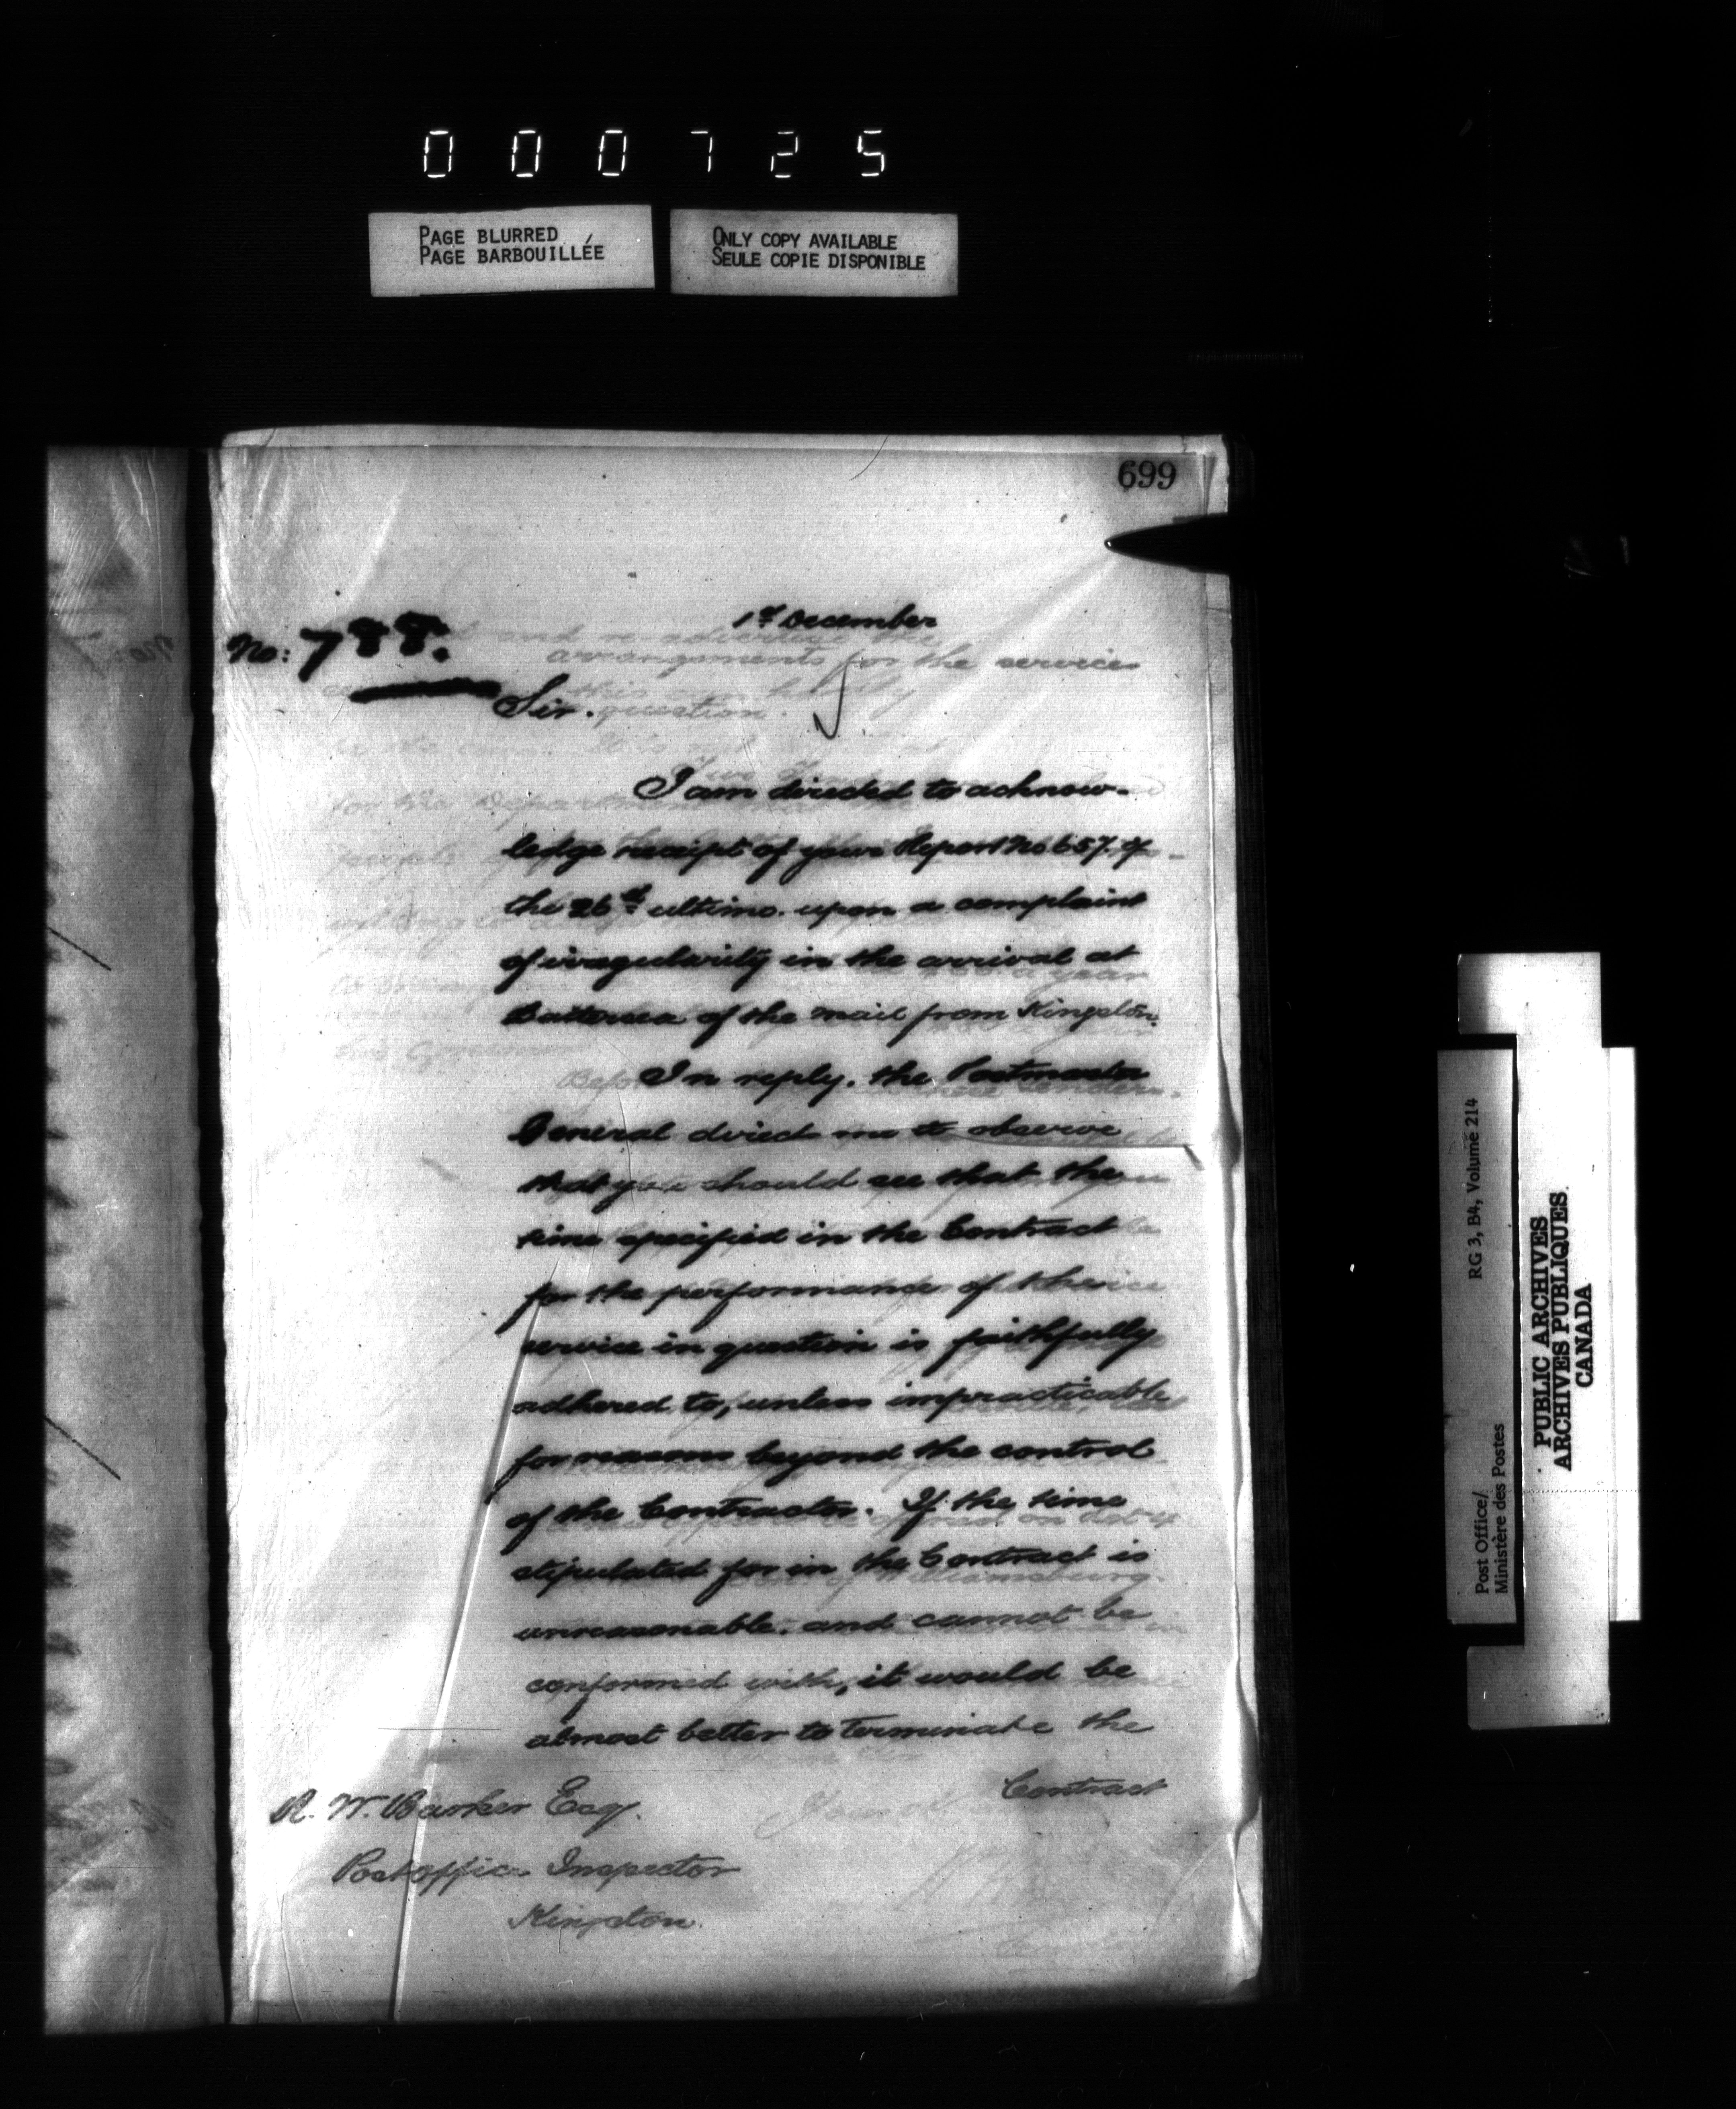 000725
PAGE BLURRED
PAGE BARBOUILLÉE
ONLY COPY AVAILABLE
SEULE COPIE DISPONIBLE
699
1st December
No: 788.
Sir.
I am directed to acknow-
ledge receipt of your Report No 657. of
the 26th ultimo. upon a complaint
of irregularity in the arrival at
Battersea of the mail from Kingston.
In reply. the Postmaster
General direct me to observe
that you should see that the
time specified in the Contract
for the performance of the
service in question is faithfully
adhered to, unless impracticable
for reasons beyond the control
of the Contractor. If the time
stipulated for in the Contract is
unreasonable. and cannot be
conformed with, it would be
almost better to terminate the
Contract
R. W. Barker Esq.
Post office Inspector
Kingston.
Post Office/ RG 3, B4, Volume 214
Ministère des Postes
PUBLIC ARCHIVES
ARCHIVES PUBLIQUES
CANADA